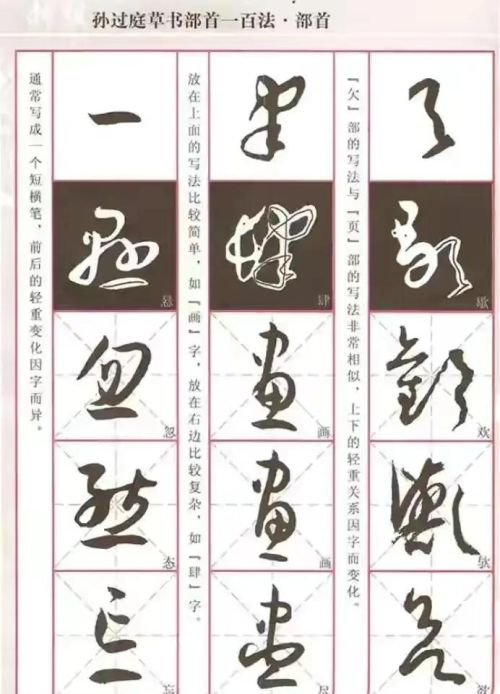 孙过庭草书部首一百法·部首
歇
欢
欤
欲
『欠』部的写法与『页』部的写法非常相似，上下的轻重关系因字而变化。
肆
画
画
尽
放在上面的写法比较简单，如『画』字，放在右边比较复杂，如『肆』字。
忽
态
忘
通常写成一个短横笔，前后的轻重变化因字而异。